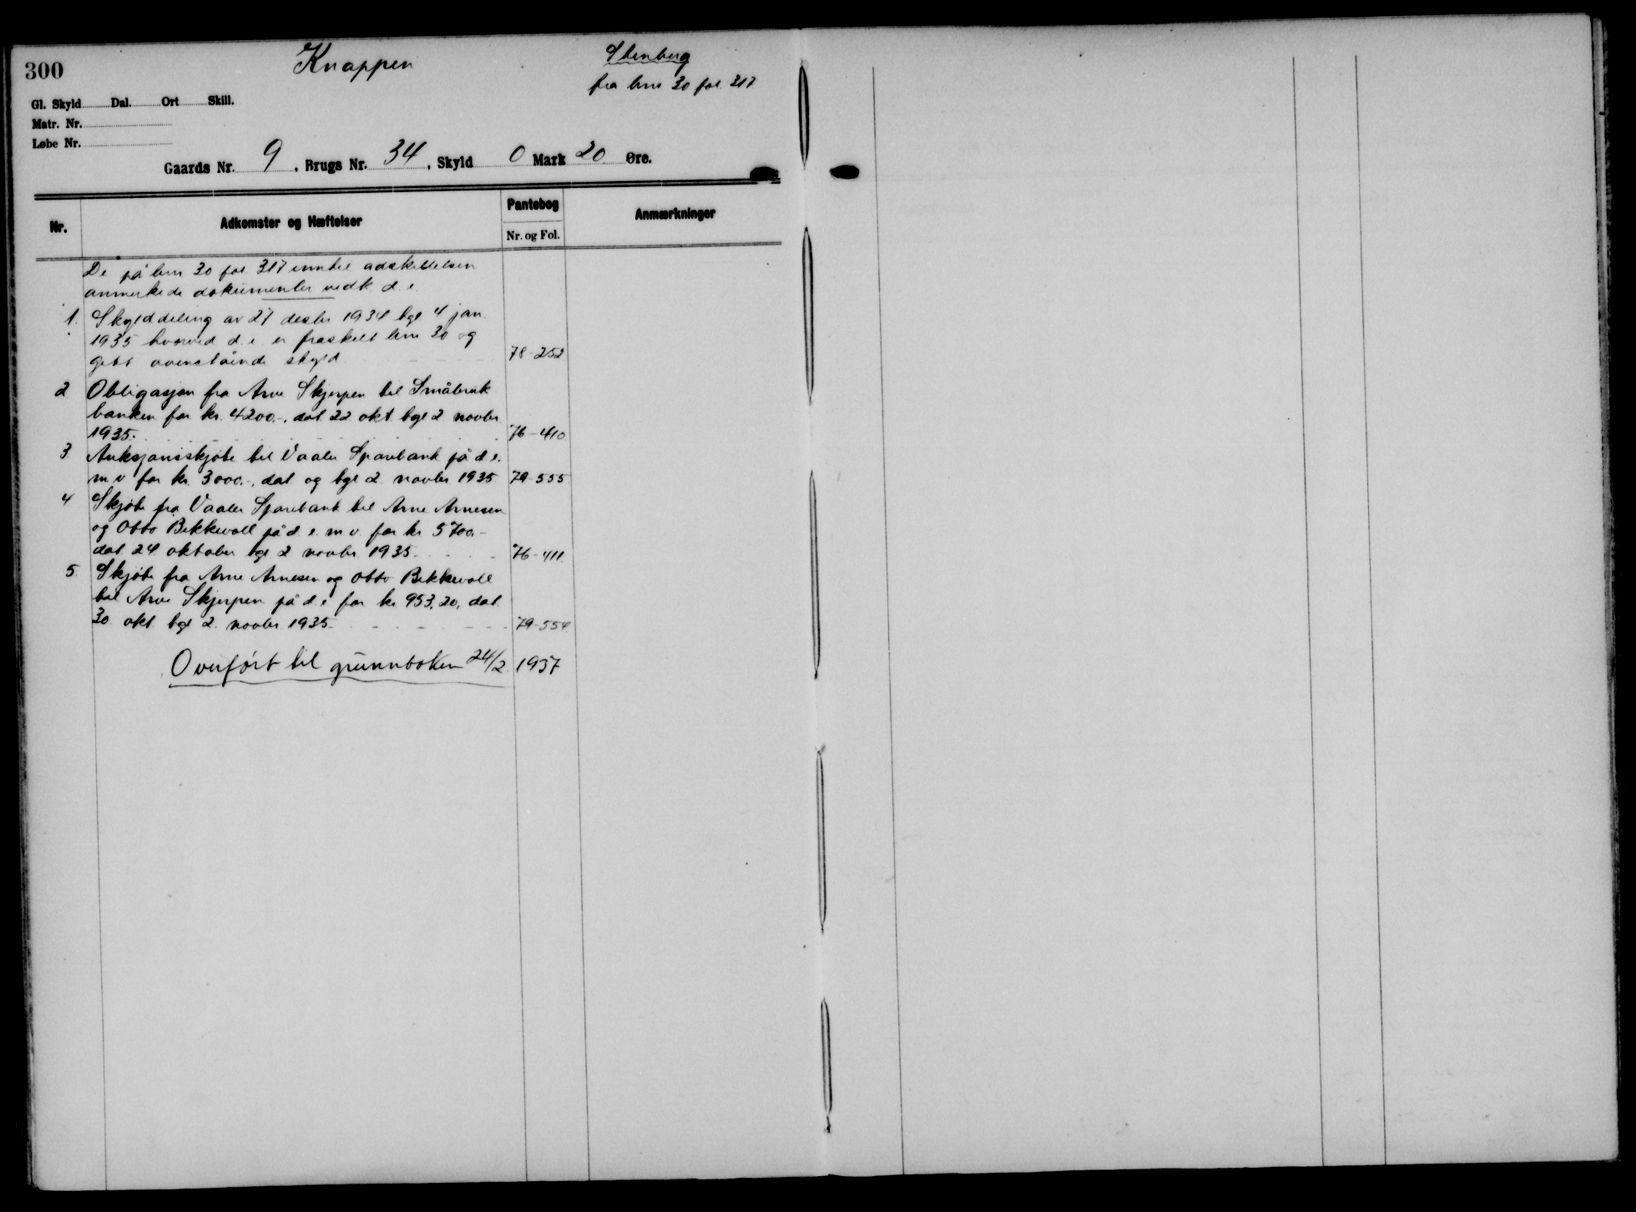 300
Knappen
Stenberg
fra bnr 30 fol 317
Gl. Skyld Dal. Ort Skill.
Matr. Nr.
Løbe Nr.
Gaards Nr. 9, Brugs Nr. 34, Skyld 0 Mark 20 Øre.
Nr.
Adkomster og Hæftelser
Pantebog
Nr. og Fol.
Anmærkninger
De på bnr 30 fol 317 inntil adskillelsen
anmerkede dokumenter vedk d. e.
1. Skylddeling av 27 desbr 1934 tgl 4 jan
1935 hvorved d. e. er fraskilt bnr 30 og
gitt ovenstående skyld 78-252
2 Obligasjon fra Arve Skjerpen til Småbruk
banken for kr. 4200.-, dat 22 okt tgl 2 novbr
1935. 76-410
3 Auksjonsskjøte til Vaaler Sparebank på d. e.
m v for kr. 3000.-, dat og tgl 2 novbr 1935 79-555
4 Skjøte fra Vaaler Sparebank til Arne Arnesen
og Otto Bekkevoll på d. e. m v. for kr 5700.-
dat 24 oktober tgl 2 novbr 1935 76-411
5 Skjøte fra Arne Arnesen og Otto Bekkevoll
til Arve Skjerpen på d. e for kr 953,20, dat
30 okt tgl 2. novbr 1935 79-554
Overført til grunnboken 24/2 1957